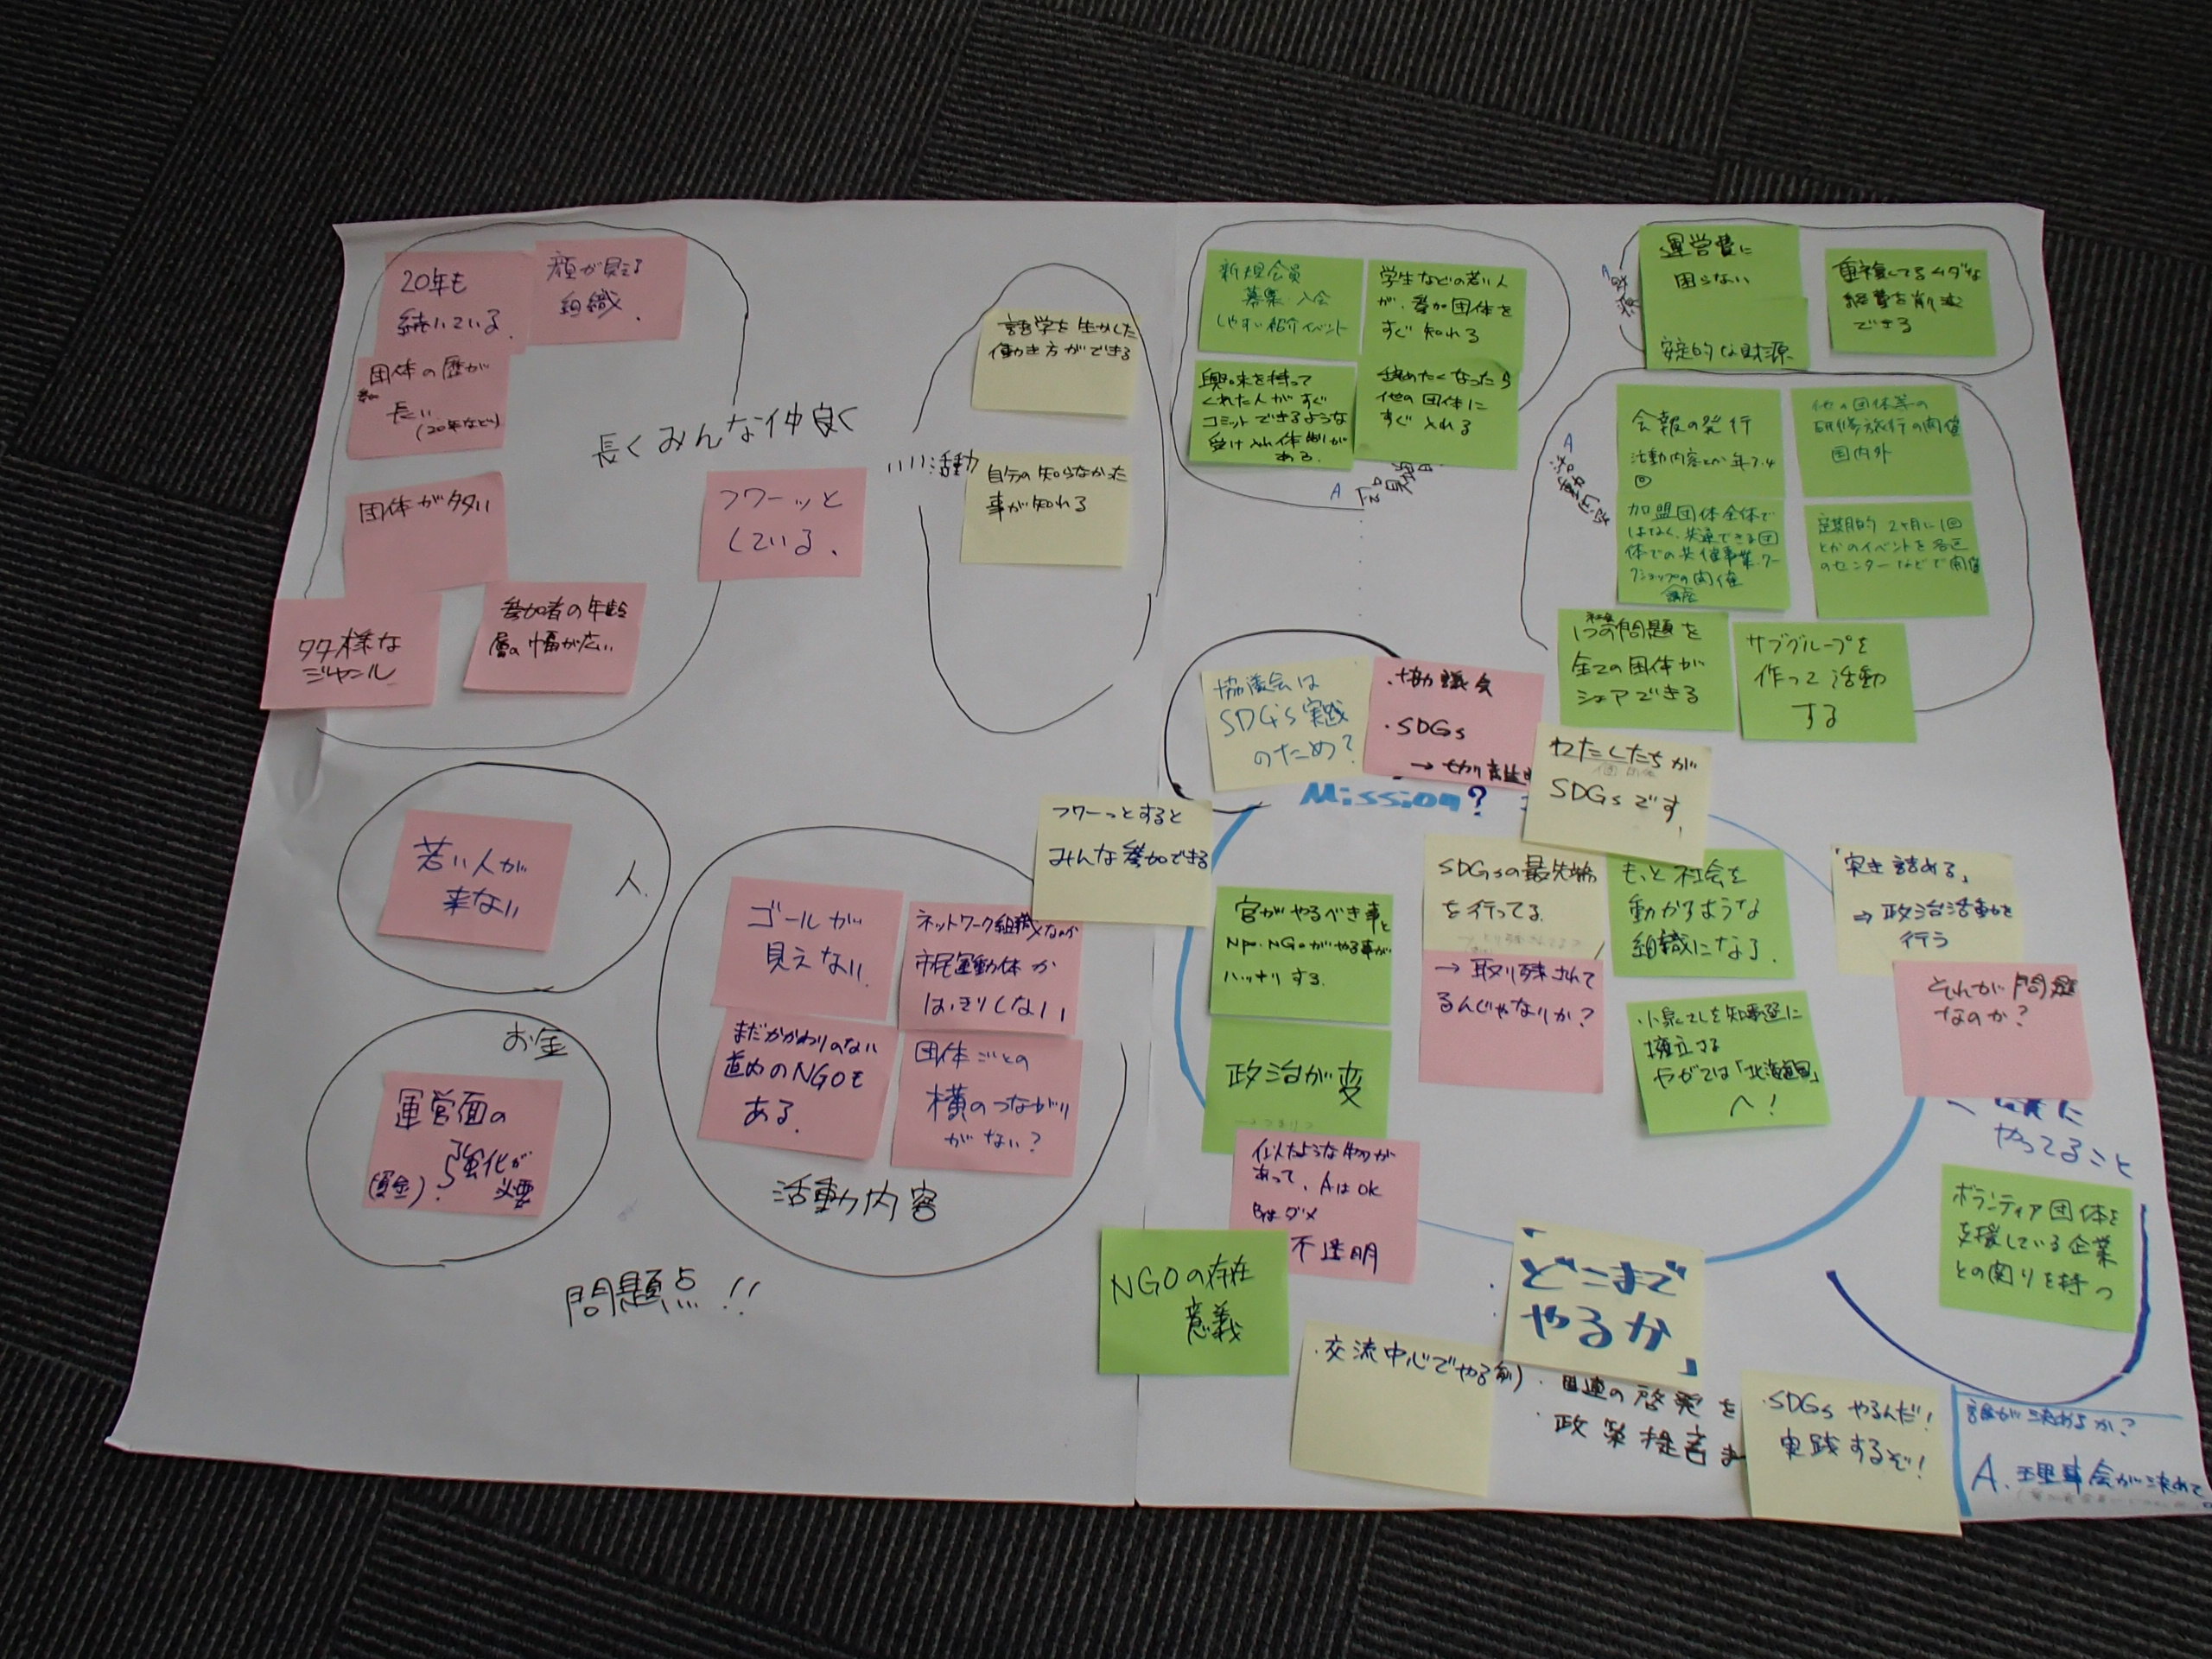 20年も
続いている.
顔が見える
組織.
団体の歴が
長い
(20年など)
団体が多い
多様な
ジャンル
参加者の年齢
層の幅が広い
長くみんな仲良く
フワーッと
している.
いい活動
語学を生かした
働き方ができる
自分の知らなかった
事が知れる
新規会員
募集・入会
しやすい紹介イベント
学生などの若い人
が、参加団体を
すぐ知れる
興味を持って
くれた人がすぐ
コミットできるような
受け入れ体制が
ある.
辞めたくなったら
他の団体に
すぐ入れる
A
運営費に
困らない
安定的な財源
重複してるムダな
経費を削減
できる
A
活動内容
会報の発行
活動内容とか年3.4
回
他の団体等の
研修旅行の開催
国内外
加盟団体全体で
はなく、共通できる団
体での共催事業.ワー
クショップの開催
講座
定期的 2ヶ月に1回
とかのイベントを各区
のセンターなどで開催
社会
1つの問題を
全ての団体が
シェアできる
サブグループを
作って活動
する
協議会は
SDG's実践
のため?
・協議会
・SDGs
→切り離
わたしたちが
SDGsです.
Mission?
フワーっとすると
みんな参加できる
若い人が
来ない
人.
お金
運営面の
強化が
必要
(資金).
ゴールが
見えない.
ネットワーク組織なのか
市民運動体か
はっきりしない
まだかかわりのない
道内のNGOも
ある.
団体ごとの
横のつながり
がない?
活動内容
問題点!!
官がやるべき事と
NPO.NGOがやる事が
ハッキリする.
SDGsの最先端
を行ってる.
もっと社会を
動かすような
組織になる.
「突き詰める」
⇒政治活動を
行う
→取り残されて
るんじゃないか?
それが問題
なのか?
政治が変
小泉くしを知事選に
擁立する
やがては「北海道国」
へ!
やってること
似たような物が
あって、AはOK
Bはダメ
不透明
NGOの存在
意義
「どこまで
やるか」
ボランティア団体を
支援している企業
との関りを持つ
・交流中心でやる
・国連の啓発を
・政策提言ま
・SDGsやるんだ!
実践するぞ!
誰が決めるか?
A.理事会が決めて